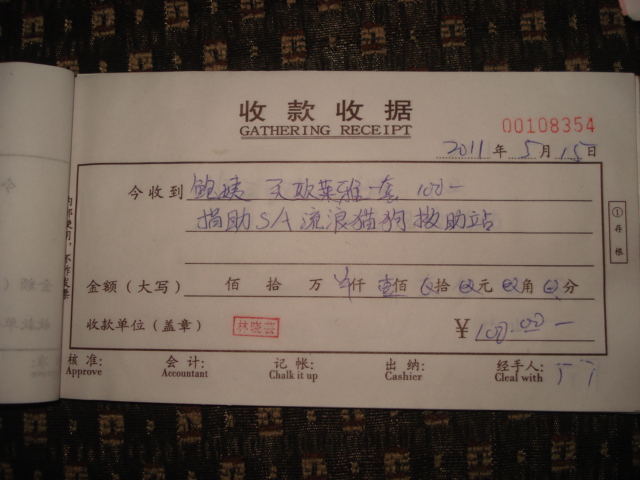 收款收据
GATHERING RECEIPT
00108354
2011年5月15日
今收到 鲍姨 欧莱雅一套 100-
捐助SA流浪猫狗救助站
金额（大写） 佰 拾 万 仟 壹佰 拾 元 角 分
收款单位（盖章） 林晓芸 ¥100.00-
核准: 会计: 记帐: 出纳: 经手人:
Approve Accountant Chalk it up Cashier Cleal with
①存根
内部使用，不作发票